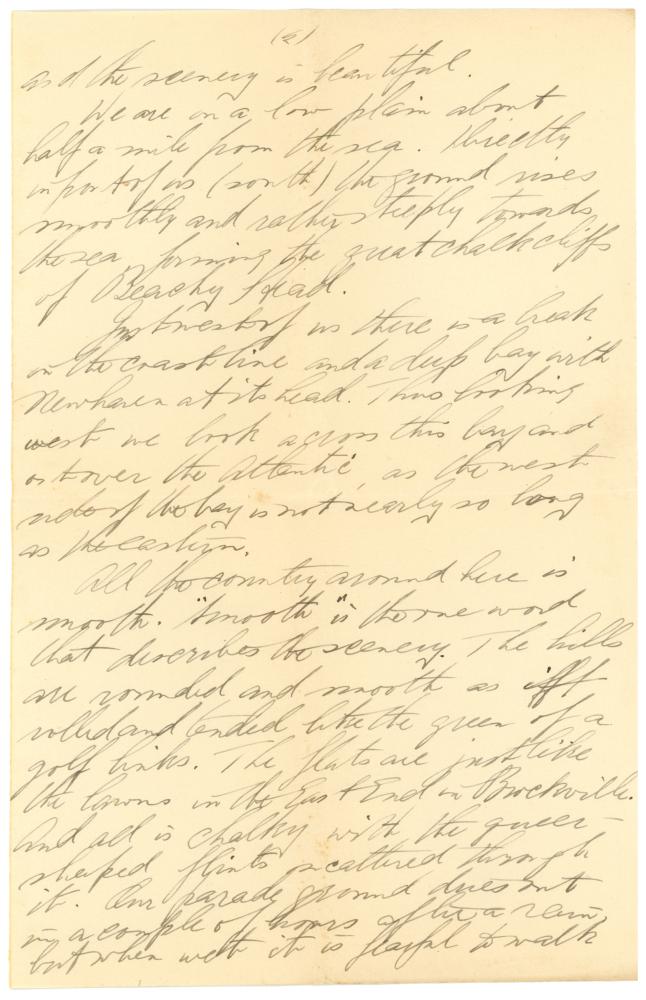 (2)
and the scenery is beautiful.
We are on a low plain about
half a mile from the sea. Directly
in front of us (south) the ground rises
smoothly and rather steeply towards
the sea, forming the great chalk cliffs
of Beachy Head.
Just west of us there is a break
in the coast line and a deep bay with
Newhaven at its head. Thus looking
west we look across this bay and
out over the Atlantic, as the west
side of the bay is not nearly so long
as the eastern.
All the country around here is
smooth. "Smooth" is the one word
that describes the scenery. The hills
are rounded and smooth as if
rolled and tended like the green of a
golf links. The flats are just like
the lawns in the East End in Brockville.
And all is chalky with the queer-
shaped flints scattered through
it. Our parade ground dries out
in a couple of hours after a rain,
but when wet it is fearful to walk